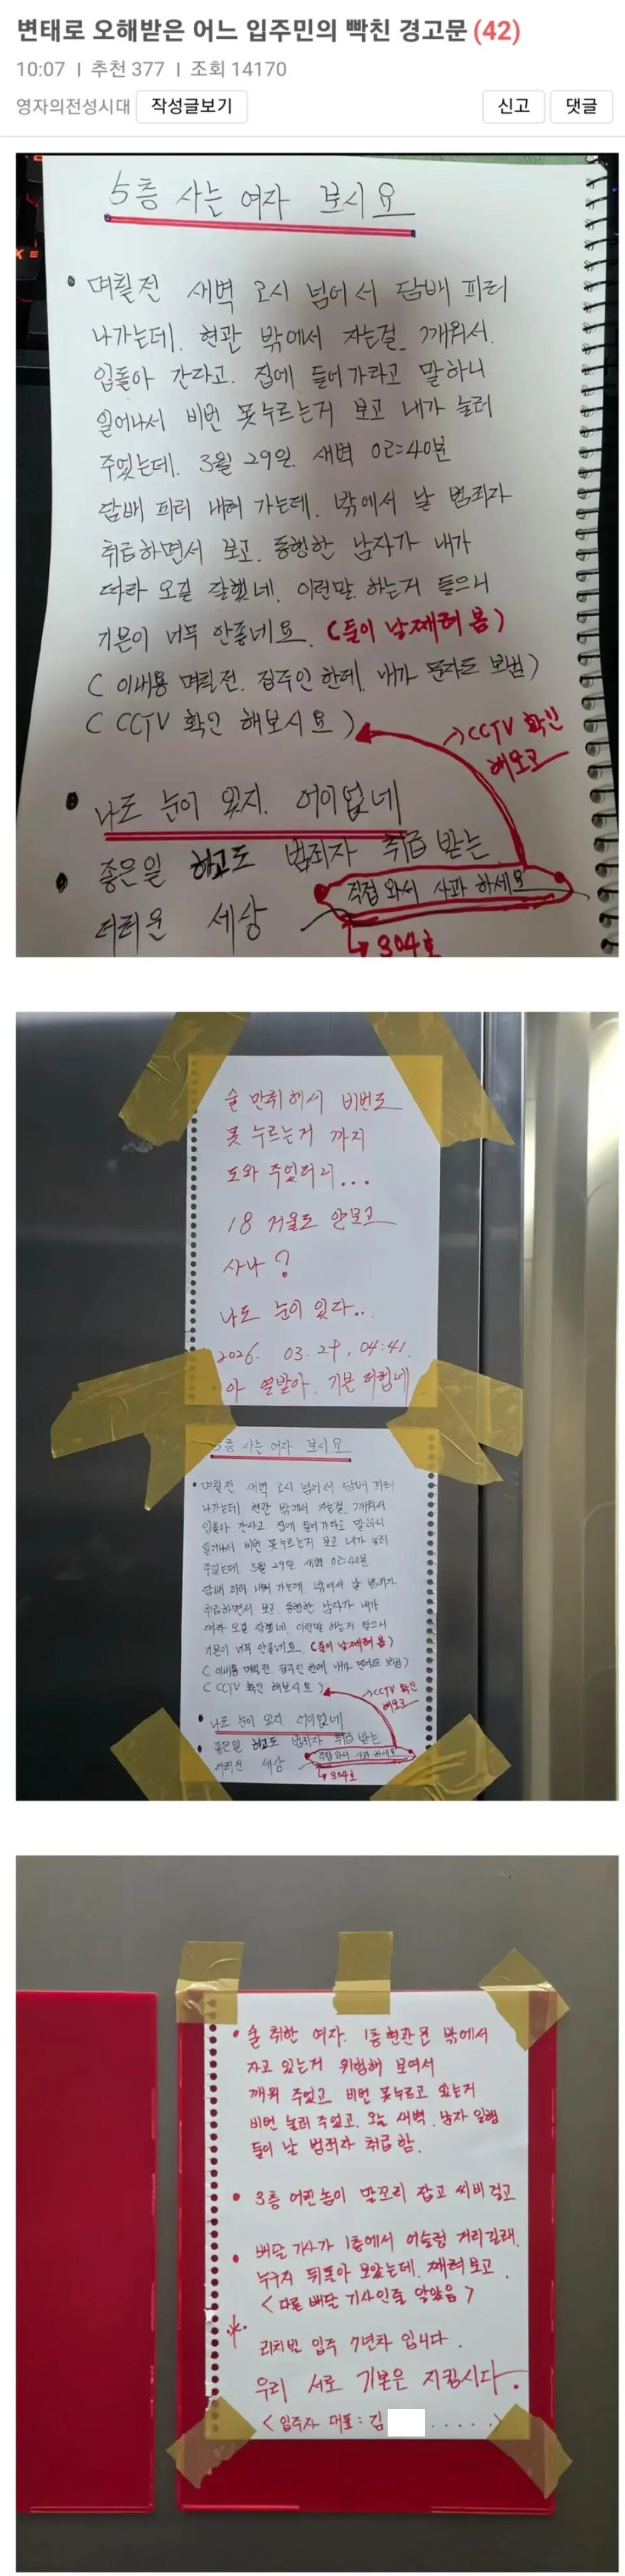 변태로 오해받은 어느 입주민의 빡친 경고문 (42)
10:07 | 추천 377 | 조회 14170
영자의전성시대 작성글보기 신고 댓글
5층 사는 여자 보시요
• 며칠전 새벽 2시 넘어서 담배 피러
나가는데. 현관 밖에서 자는걸 깨워서.
입돌아 간다고. 집에 들어가라고 말하니
일어나서 비번 못누르는거 보고 내가 눌러
주었는데. 3월 29일. 새벽 02:40분
담배 피러 내려 가는데. 밖에서 날 범죄자
취급하면서 보고. 동행한 남자가 내가
따라 오길 잘했네. 이런말 하는거 들으니
기분이 너무 안좋네요. (둘이 날째려 봄)
( 이내용 며칠전. 집주인 한테. 내가 문자도 보냄)
( CCTV 확인 해보시요 )
→CCTV 확인
해보고
• 나도 눈이 있지. 어이없네
• 좋은일 하고도 범죄자 취급 받는
더러운 세상
직접 와서 사과 하세요
↳ 304호
술 만취해서 비번도
못 누르는거 까지
도와 주었더니...
18 거울도 안보고
사나?
나도 눈이 있다..
2026. 03. 29. 04:41.
아 열받아. 기분 더럽네
5층 사는 여자 보시요
• 며칠전 새벽 2시 넘어서 담배 피러
나가는데. 현관 밖에서 자는걸 깨워서.
입돌아 간다고. 집에 들어가라고 말하니
일어나서 비번 못누르는거 보고 내가 눌러
주었는데. 3월 29일. 새벽 02:40분
담배 피러 내려 가는데. 밖에서 날 범죄자
취급하면서 보고. 동행한 남자가 내가
따라 오길 잘했네. 이런말 하는거 들으니
기분이 너무 안좋네요. (둘이 날째려 봄)
( 이내용 며칠전. 집주인 한테. 내가 문자도 보냄)
( CCTV 확인 해보시요 )
→CCTV 확인
해보고
• 나도 눈이 있지. 어이없네
• 좋은일 하고도 범죄자 취급 받는
더러운 세상
직접 와서 사과 하세요
↳ 304호
• 술 취한 여자. 1층현관문 밖에서
자고 있는거 위험해 보여서
깨워 주었고 비번 못누르고 있는거
비번 눌러 주었고. 오늘 새벽. 남자 일행
들이 날 범죄자 취급 함.
• 3층 어린놈이 말꼬리 잡고 씨비 걸고
• 배달 기사가 1층에서 어슬렁 거리길래.
누구지 뒤돌아 보았는데. 째려 보고.
< 다른 배달 기사인줄 알았음 >
* 리치빌 입주 7년차 입니다.
우리 서로 기본은 지킵시다.
< 입주자 대표 : 김 ..... >